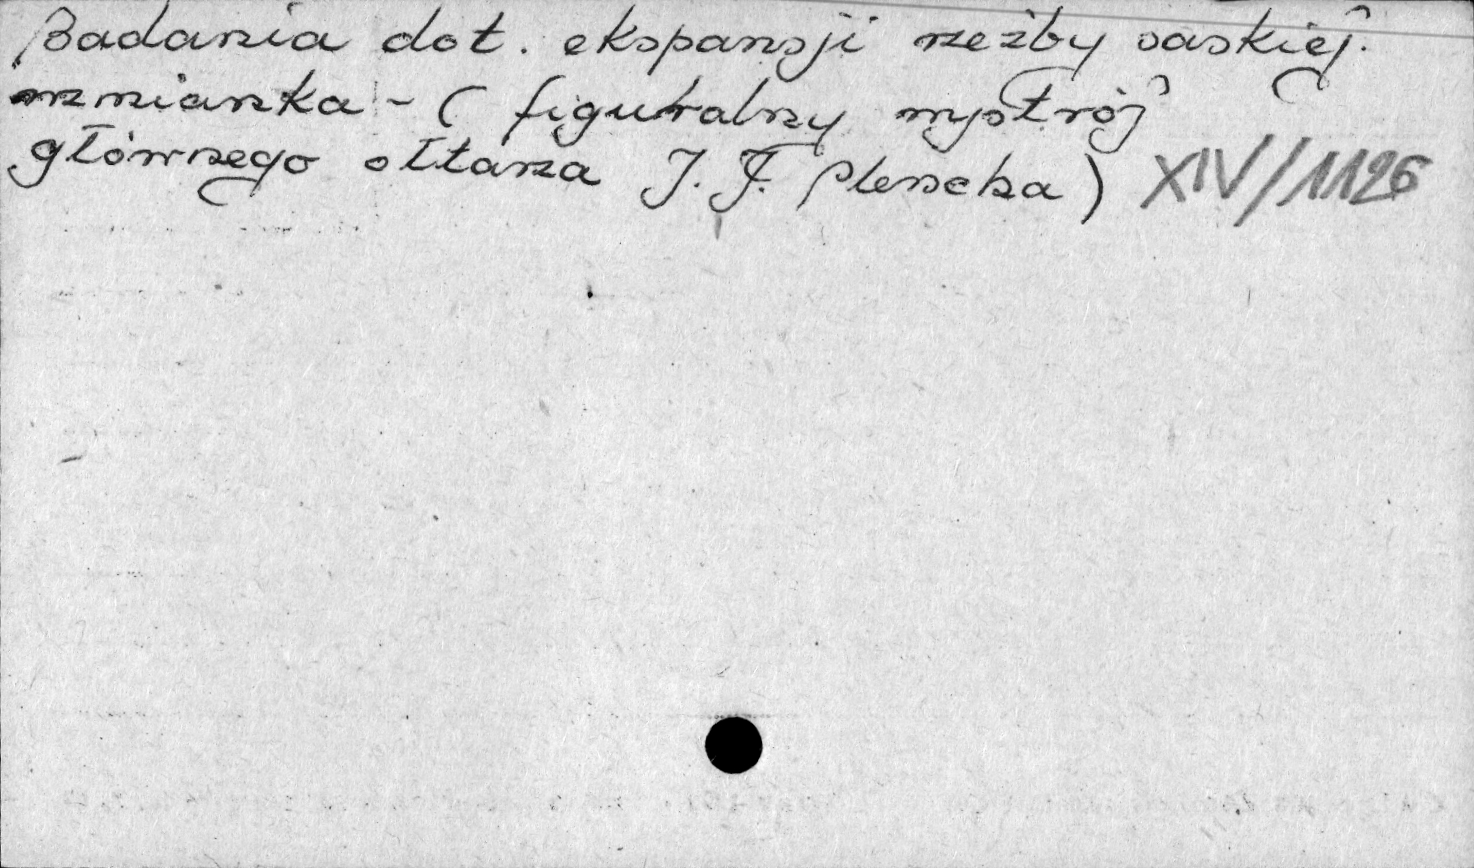 Badania dot. ekspansji rzeźby saskiej.
wzmianka - (figuralny wystrój
głównego ołtarza J. F. Plerscha) XIV/1126